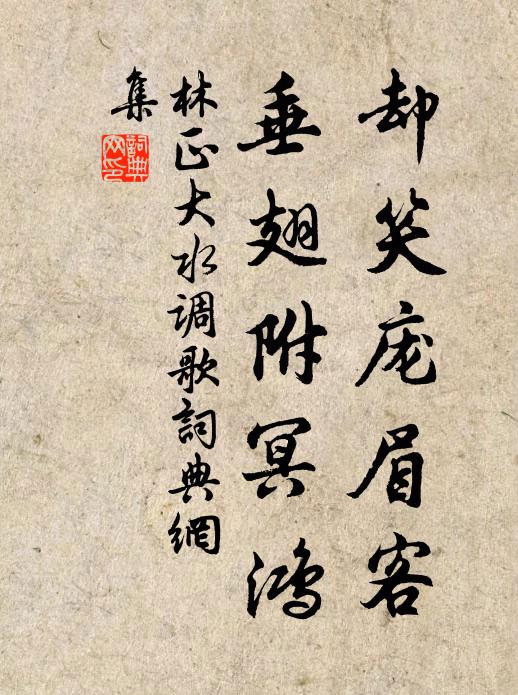 却笑庞眉客
垂翅附冥鸿
林正大水调歌詞典網
集
詞典
网印